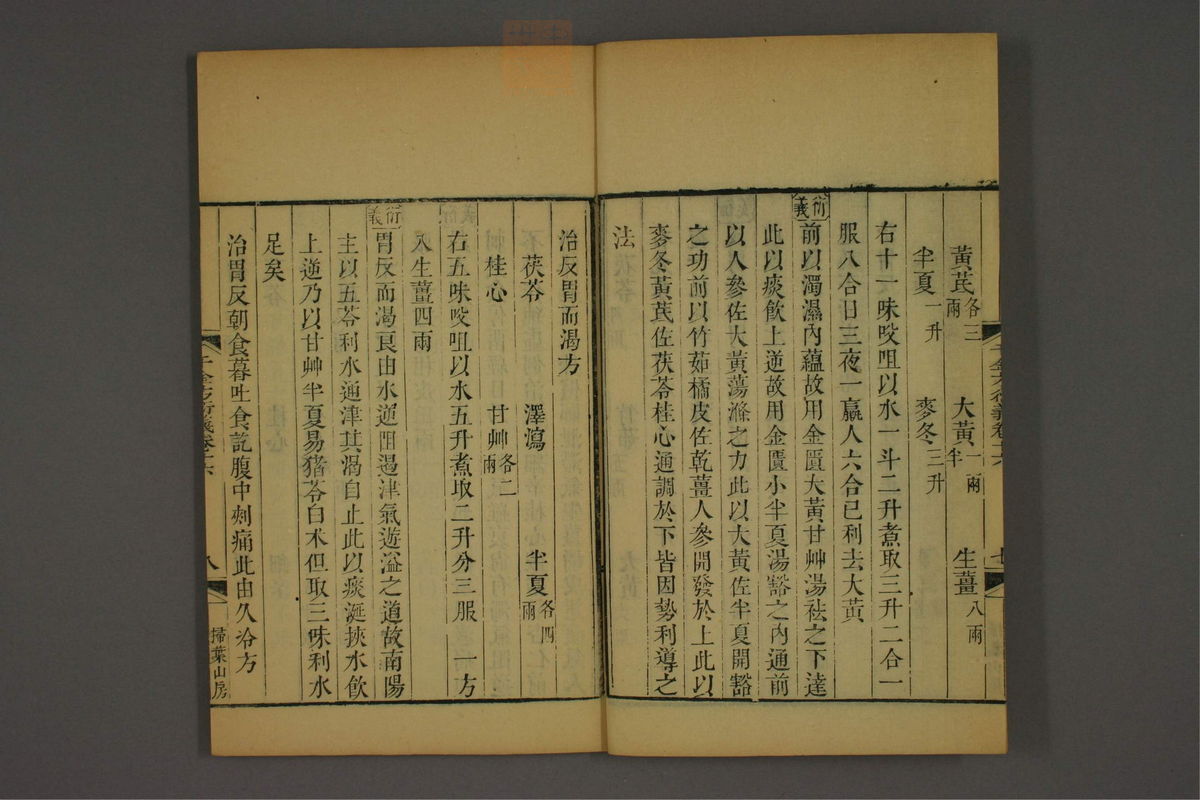 黃芪各三兩　大黃一兩半　生薑八兩
半夏一升　麥冬三升
右十一味㕮咀以水一斗二升煮取三升二合一
服八合日三夜一羸人六合已利去大黃
衍義前以濁濕內蘊故用金匱大黃甘艸湯祛之下達
此以痰飲上逆故用金匱小半夏湯豁之內通前
以人參佐大黃蕩滌之力此以大黃佐半夏開豁
之功前以竹茹橘皮佐乾薑人參開發於上此以
麥冬黃芪佐茯苓桂心通調於下皆因勢利導之
法
千金方衍義卷十六　七
治反胃而渴方
茯苓　澤瀉　半夏各四兩
桂心　甘艸各二兩
右五味㕮咀以水五升煮取二升分三服　一方
入生薑四兩
衍義胃反而渴良由水逆阻遏津氣遊溢之道故南陽
主以五苓利水通津其渴自止此以痰涎挾水飲
上逆乃以甘艸半夏易猪苓白术但取三味利水
足矣
治胃反朝食暮吐食訖腹中刺痛此由久冷方
千金方衍義卷十六　八　掃葉山房